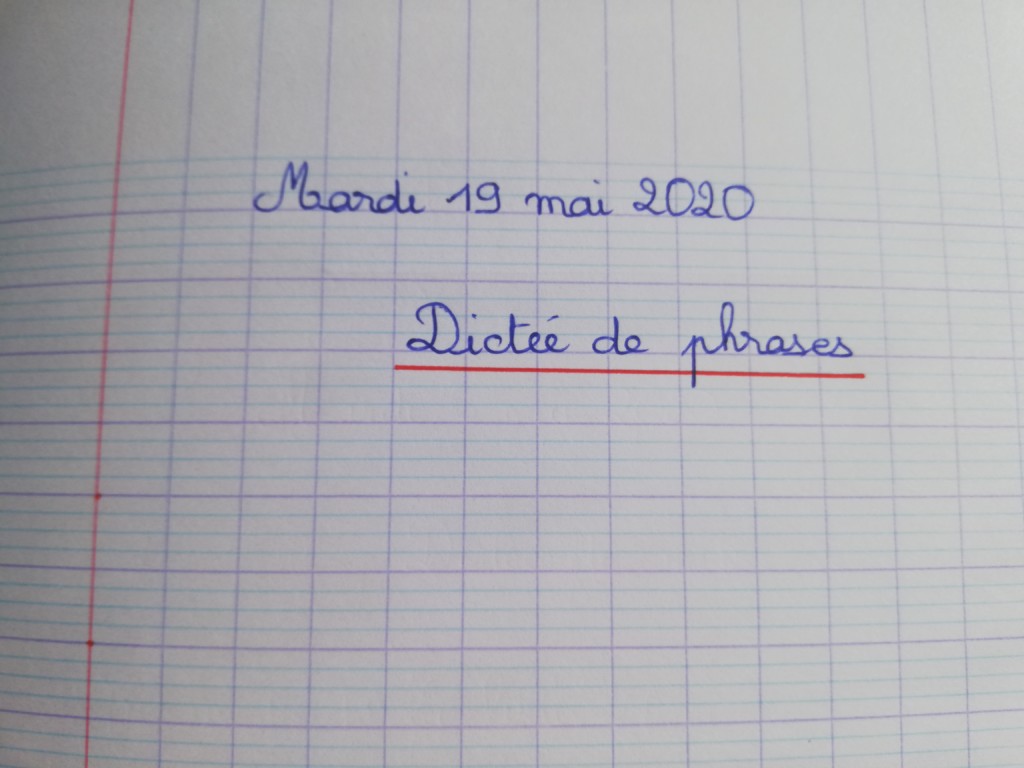 Mardi 19 mai 2020
Dictée de phrases